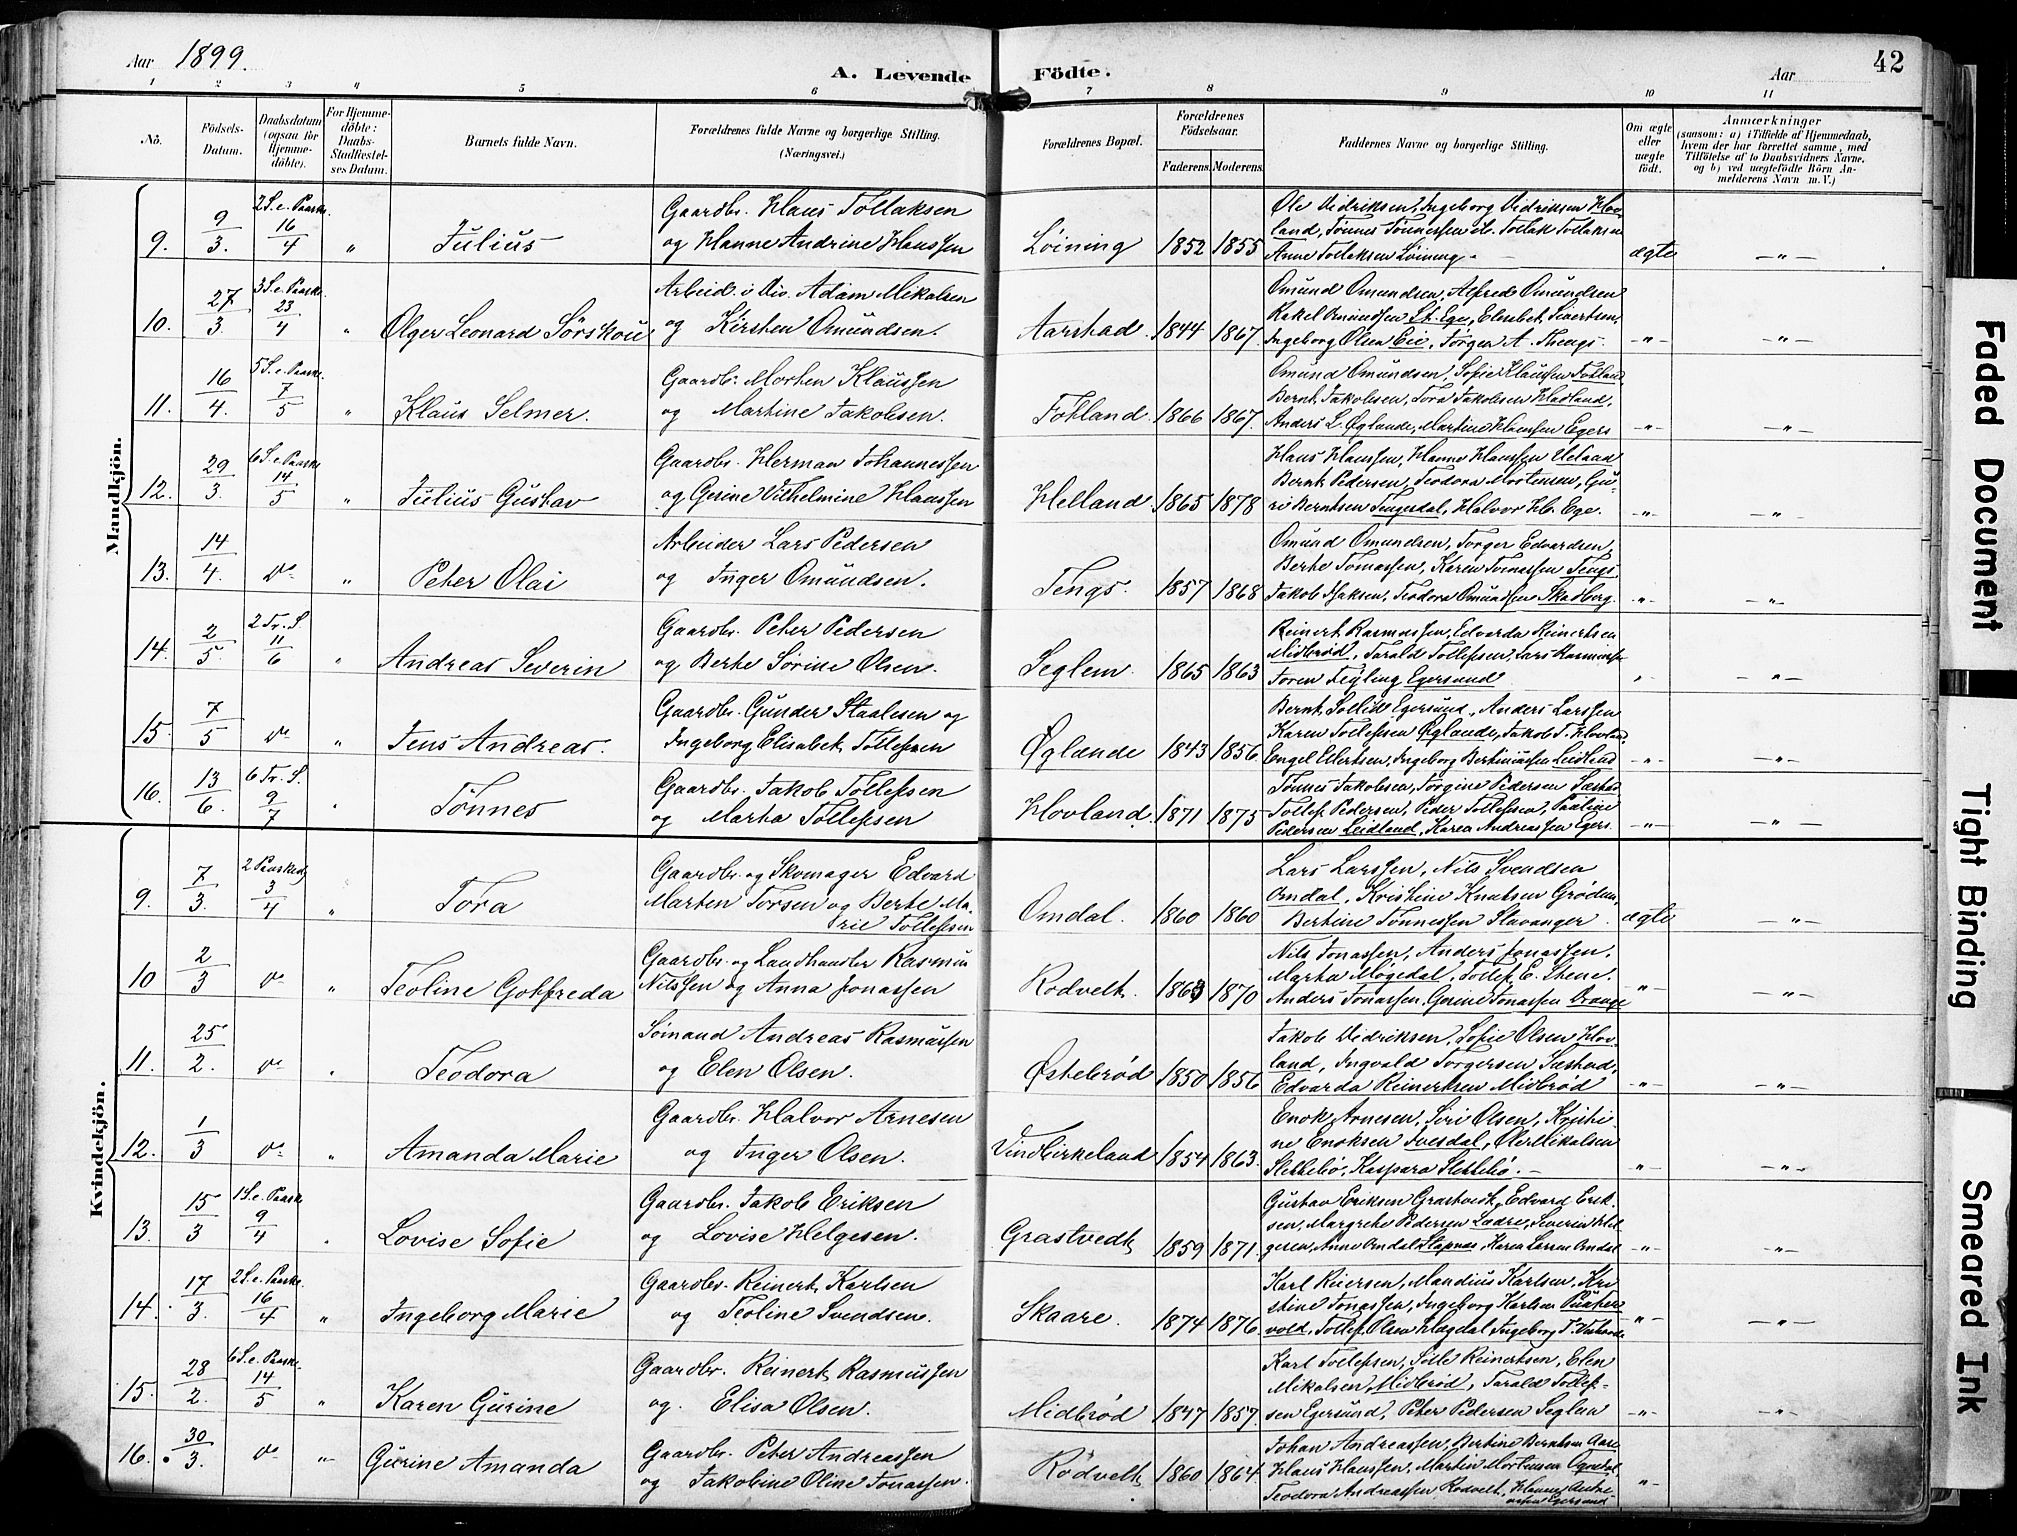 Aar 1899.
A. Levende Födte.
Aar
42
1 2 3 4 5 6 7 8 9 10 11
No.
Födsels-Datum.
Daabsdatum (ogsaa for Hjemmedöbte).
For Hjemmedöbte: Daabs-Stadfæstelses Datum.
Barnets fulde Navn.
Forældrenes fulde Navne og borgerlige Stilling. (Næringsvei.)
Forældrenes Bopæl.
Forældrenes Födselsaar.
Faderens. Moderens.
Faddernes Navne og borgerlige Stilling.
Om ægte eller uægte födt.
Anmærkninger
(saasom: a) i Tilfælde af Hjemmedaab, hvem der har forrettet samme, med Tilföielse af to Daabsvidners Navne, og b) ved uægtefödte Börn Anmelderens Navn m. V.)
Mandkjön.
9. 9/3. 2 S. e. Paaske. 16/4 " Julius
Gaardbr. Klaus Tollaksen
og Hanne Andrine Klaussen
Löining 1852 1855
Ole Didriksen, Ingeborg Didriksen Hovland, Tönnes Tönnessen, Tollak Tollaksen
Anne Tollaksen Löining. ægte -"-
10. 27/3. 3 S. e. Paaske. 23/4 " Olger Leonard Sörskou
Arbeid. Adam Mikalsen
og Kirsten Omundsen.
Aarstad. 1844 1867.
Omund Omundsen, Alfred Omundsen
Rakel Omundsen St. Ege, Elisabet Sivertsen,
Ingeborg Olsen Eie, Jörgen A. Thengs. -"- -"-
11. 16/4. 5 S. e. Paaske. 7/5 " Klaus Selmer.
Gaardb. Morten Klaussen
og Martine Jakobsen.
Fotland. 1866 1867.
Omund Omundsen, Sofie Klaussen Fotland,
Bernt Jakobsen, Tora Jakobsen Hadland,
Anders L. Øglende, Martine Klaussen Egers. -"- -"-
12. 29/3. 6 S. e. Paaske 14/5 " Julius Gustav
Gaardbr. Herman Johannessen
og Gerine Vilhelmine Klaussen
Helland. 1865 1878
Klaus Klaussen, Hanne Klaussen Ueland
Bernt Pedersen, Teodora Mortensen, Guri Berntsen Tengesdal, Halvor H. Ege. -"- -"-
13. 14/4. do " Peter Olai
Arbeider Lars Pedersen
og Inger Omundsen.
Tengs. 1857 1868
Omund Omundsen, Torger Edvardsen,
Berte Tomassen, Karen Tomassen Tengs,
Jakob Isaksen, Teodora Omundsen Skadberg. -"- -"-
14. 2/5. 2 Tr. S. 11/6 " Andreas Severin
Gaardbr. Peter Pedersen
og Berte Sörine Olsen.
Seglem. 1865 1863
Reinert Rasmussen, Edvarda Reinertsen
Midbröd, Tarald Tollefsen, Lars Rasmussen
Egersund. " -"-
15. 7/5 do " Jens Andreas.
Gaardbr. Gunder Staalesen og
Ingeborg Elisabet Tollefsen
Øglænde 1843 1856.
Bernt Sollid Egersund, Anders Larssen
Karen Tollefsen Øglænde, Jakob T. Hovland,
Engel Eilertsen, Ingeborg Bertinussen Leidland -"- -"-
16. 13/6. 6 Tr. S. 9/7 " Tönnes
Gaardbr. Jakob Tollefsen
og Marta Tollefsen
Hovland. 1871 1875
Tönnes Jakobsen, Jörgine Pedersen Sæstad
Tollef Pedersen, Peder Tollefsen, Pauline
Pedersen Leidland, Karen Andreassen Egers. -"- -"-
Kvindekjön.
9. 7/3. 2 Paaskedg 3/4 " Tora
Gaardbr. og Skomager Edvard
Marten Torsen og Berte Marie Tollefsen
Omdal. 1860 1860
Lars Larssen, Nils Svendsen
Omdal, Kristine Knutsen Grödem,
Bertine Tönnessen Stavanger. ægte -"-
10 2/3 do " Teoline Gotfreda
Gaardbr. og Landhandler Rasmus
Nilssen og Anna Jonassen
Rodvelt. 1863 1870
Nils Jonassen, Anders Jonassen,
Marta Mögedal, Tollef E. Stene,
Anders Jonassen, Gerine Jonassen Orange -"- -"-
11. 25/2. do " Teodora
Sömand Andreas Rasmussen
og Elen Olsen.
Østebröd 1850 1856
Jakob Didriksen, Sofie Olsen Hovland, Ingvald Torgersen Sæstad,
Edvarda Reinertsen Midbröd -"- -"-
12. 1/3 do " Amanda Marie
Gaardbr. Halvor Arnesen
og Inger Olsen.
Vindbirkeland 1854 1863.
Enok Arnesen, Siri Olsen, Kristine Enoksen Ivesdal, Ole Mikalsen
Slettebö, Kaspara Slettebö. " -"-
13. 15/3 1 S. e. Paask. 9/4 " Lovise Sofie
Gaardbr. Jakob Eriksen
og Lovise Helgesen.
Grastvedt 1859 1871.
Gustav Eriksen Grastvedt, Edvard Eriksen, Margrete Pedersen Ladre, Severin Helgesen, Anne Omdal Stapnes, Karen Larsen Omdal -"- -"-
14. 17/3. 2 S. e. Paaske. 16/4 " Ingeborg Marie
Gaardbr. Reinert Karlsen
og Teoline Svendsen.
Skaare. 1874 1876.
Karl Reiersen, Mandius Karlsen, Kristine Jonassen, Ingeborg Karlsen
Tollef Olsen Hagdal, Ingeborg T. -"- -"-
15. 28/2. 6 S. e. Paaske. 14/5 " Karen Gurine
Gaardbr. Reinert Rasmussen
og Elisa Olsen.
Midbröd 1847 1857.
Karl Tollefsen, Sille Reinertsen, Elen
Mikalsen Midbröd, Tarald Tollefsen Egersund, Peter Pedersen Seglem -"- -"-
16. 30/3. do " Gurine Amanda
Gaardbr. Peter Andreassen
og Jakobine Oline Jonassen.
Rödvelt 1860 1864
Johan Andreassen, Bertine Berntsen Aase
Klaus Klaussen, Martin Mortensen Ognedal,
Teodora Andreassen Rodvelt, Hanna Andreassen Egersund -"-
Faded Document
Tight Binding
Smeared Ink